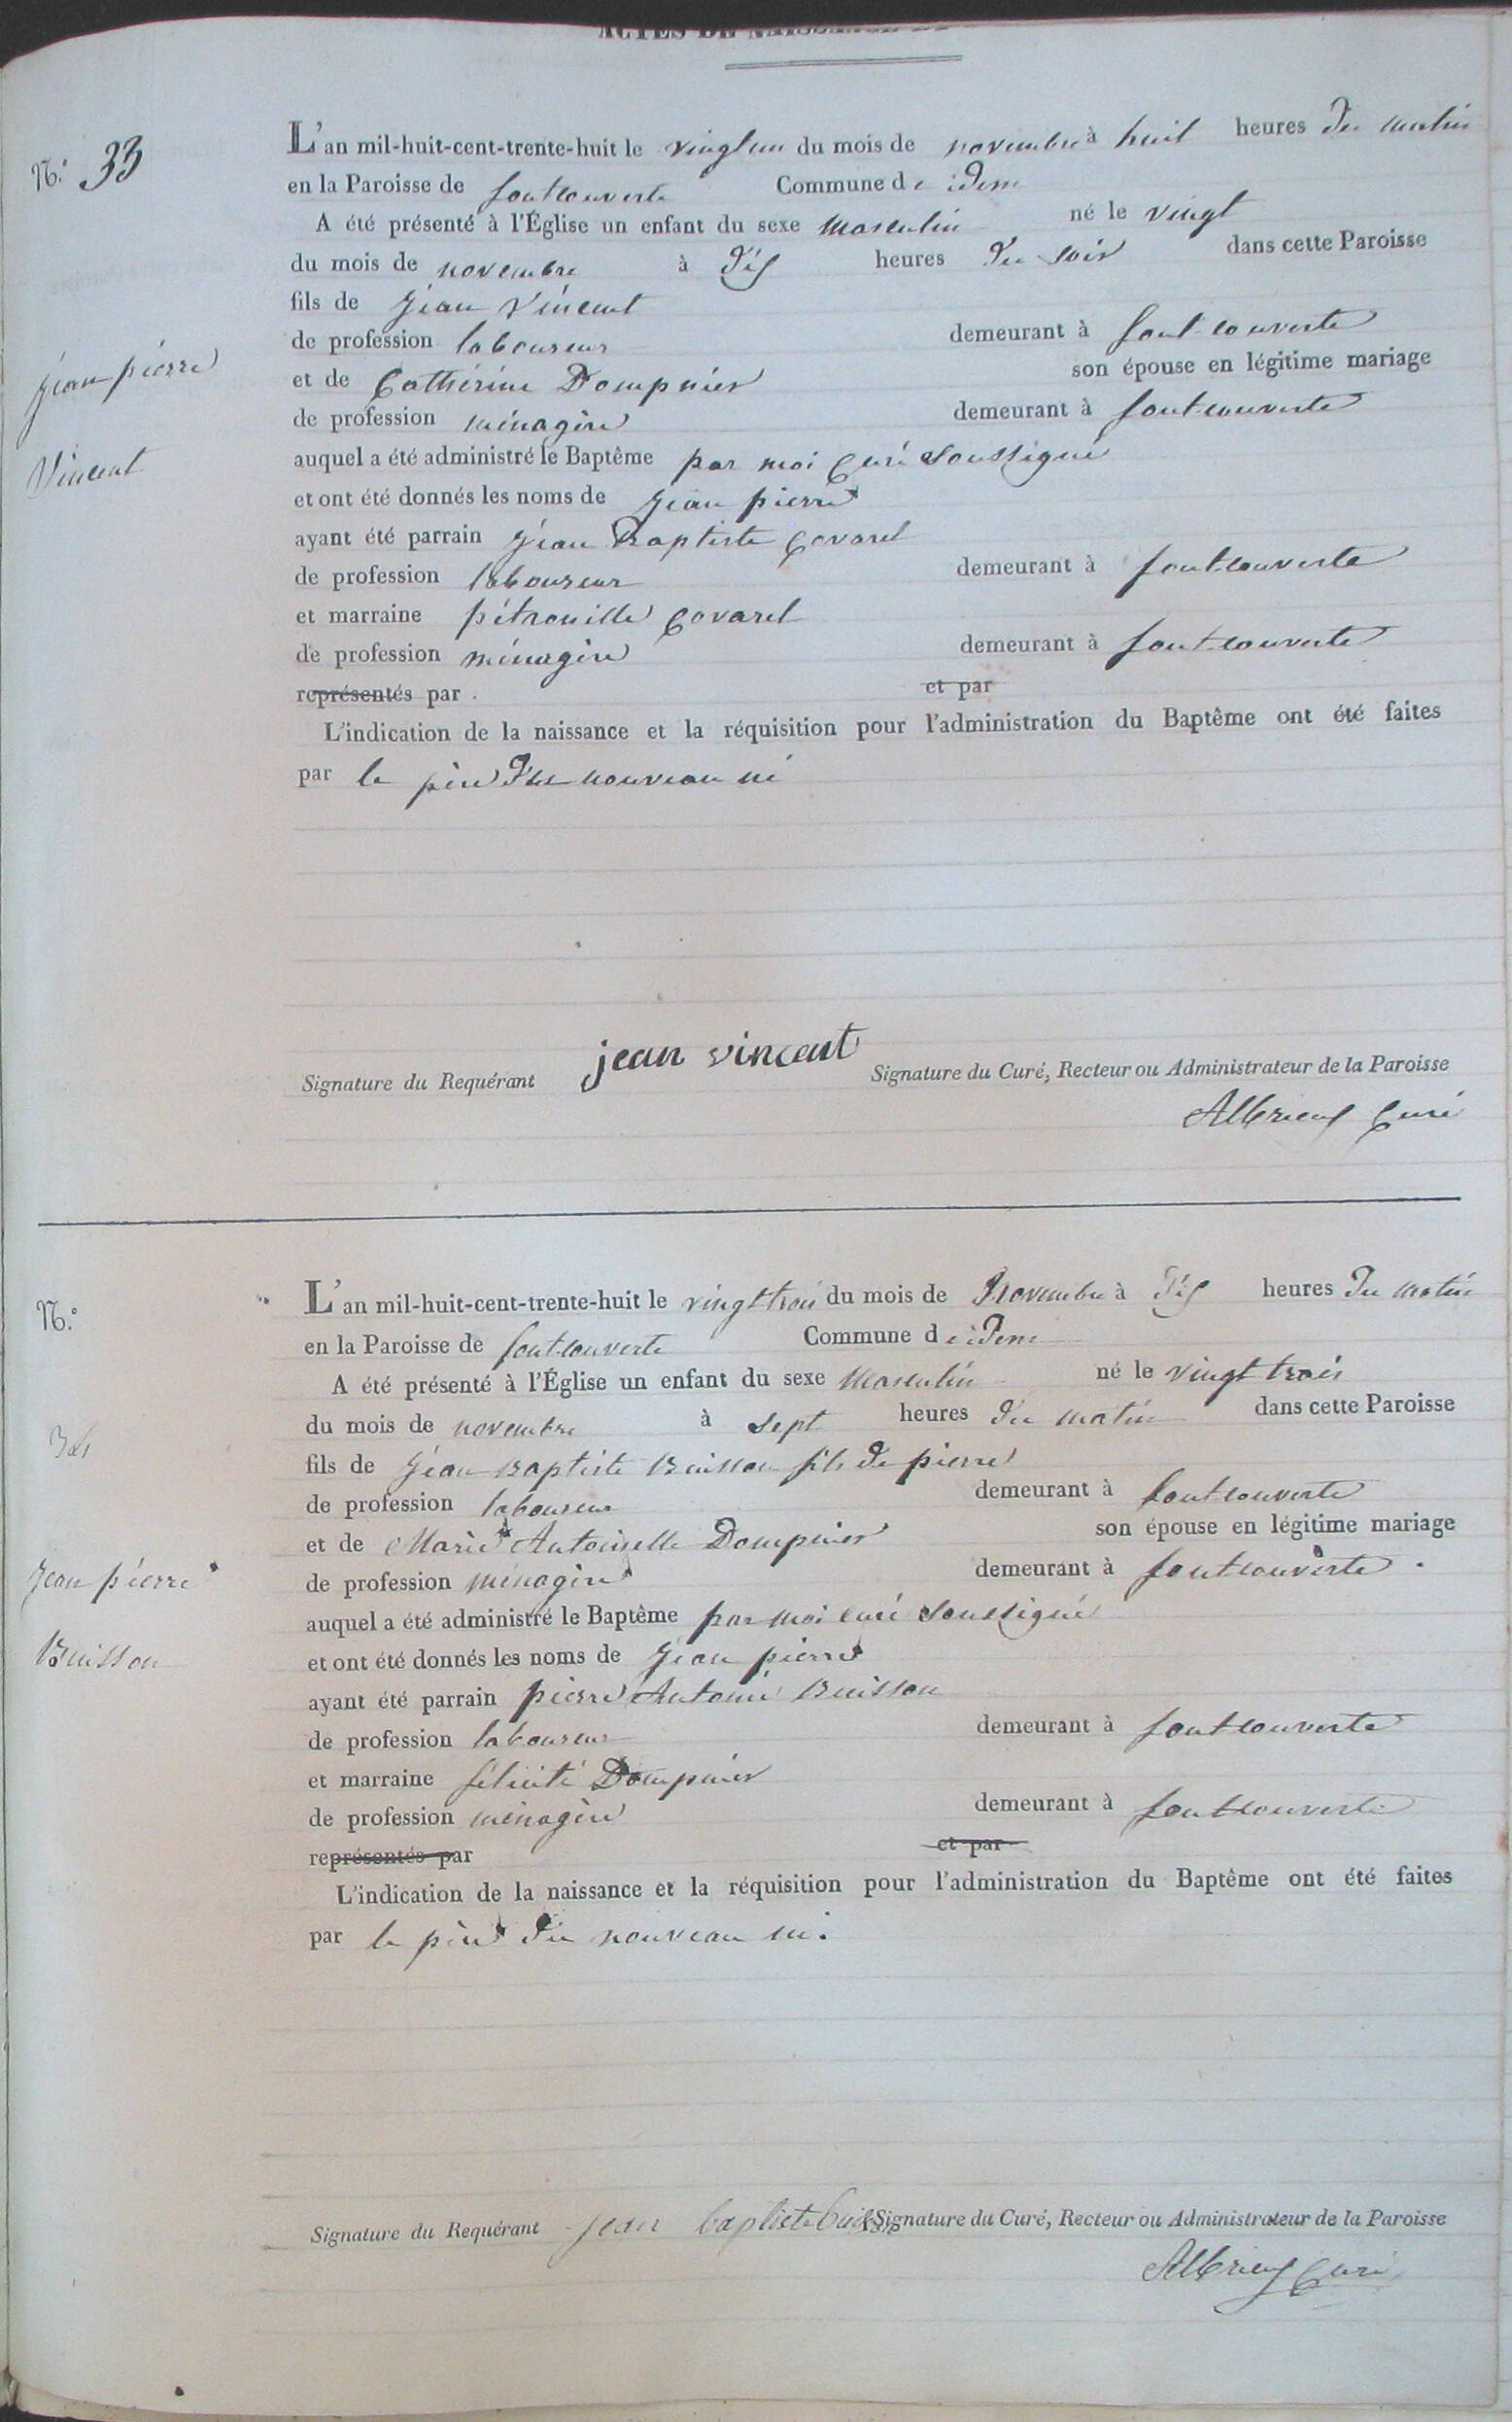 ACTES DE NAISSANCE ET
N.° 33
L'an mil-huit-cent-trente-huit le vingt un du mois de novembre à huit heures du matin
en la Paroisse de fontcouverte Commune de idem
A été présenté à l'Église un enfant du sexe masculin né le vingt
du mois de novembre à dix heures du soir dans cette Paroisse
fils de jean Vincent
de profession laboureur demeurant à fontcouverte
jean pierre
et de Catherine Dompnier son épouse en légitime mariage
de profession ménagère demeurant à fontcouverte
Vincent
auquel a été administré le Baptême par moi Curé soussigné
et ont été donnés les noms de jean pierre
ayant été parrain jean Baptiste Covarel
de profession laboureur demeurant à fontcouverte
et marraine pétronille Covarel
de profession ménagère demeurant à fontcouverte
représentés par et par
L'indication de la naissance et la réquisition pour l'administration du Baptême ont été faites
par le père du nouveau né
Signature du Requérant jean vincent Signature du Curé, Recteur ou Administrateur de la Paroisse
Albrieux Curé
N.°
L'an mil-huit-cent-trente-huit le vingt trois du mois de Novembre à dix heures du matin
en la Paroisse de fontcouverte Commune de idem
A été présenté à l'Église un enfant du sexe masculin né le vingt trois
du mois de novembre à sept heures du matin dans cette Paroisse
34
fils de jean Baptiste Buisson fils de pierre
de profession laboureur demeurant à fontcouverte
et de Marie Antoinette Dompnier son épouse en légitime mariage
jean pierre
de profession ménagère demeurant à fontcouverte
auquel a été administré le Baptême par moi curé soussigné
Buisson
et ont été donnés les noms de jean pierre
ayant été parrain pierre Antoine Buisson
de profession laboureur demeurant à fontcouverte
et marraine félicité Dompnier
de profession ménagère demeurant à fontcouverte
représentés par et par
L'indication de la naissance et la réquisition pour l'administration du Baptême ont été faites
par le père du nouveau né.
Signature du Requérant jean baptiste buisson Signature du Curé, Recteur ou Administrateur de la Paroisse
Albrieux Curé